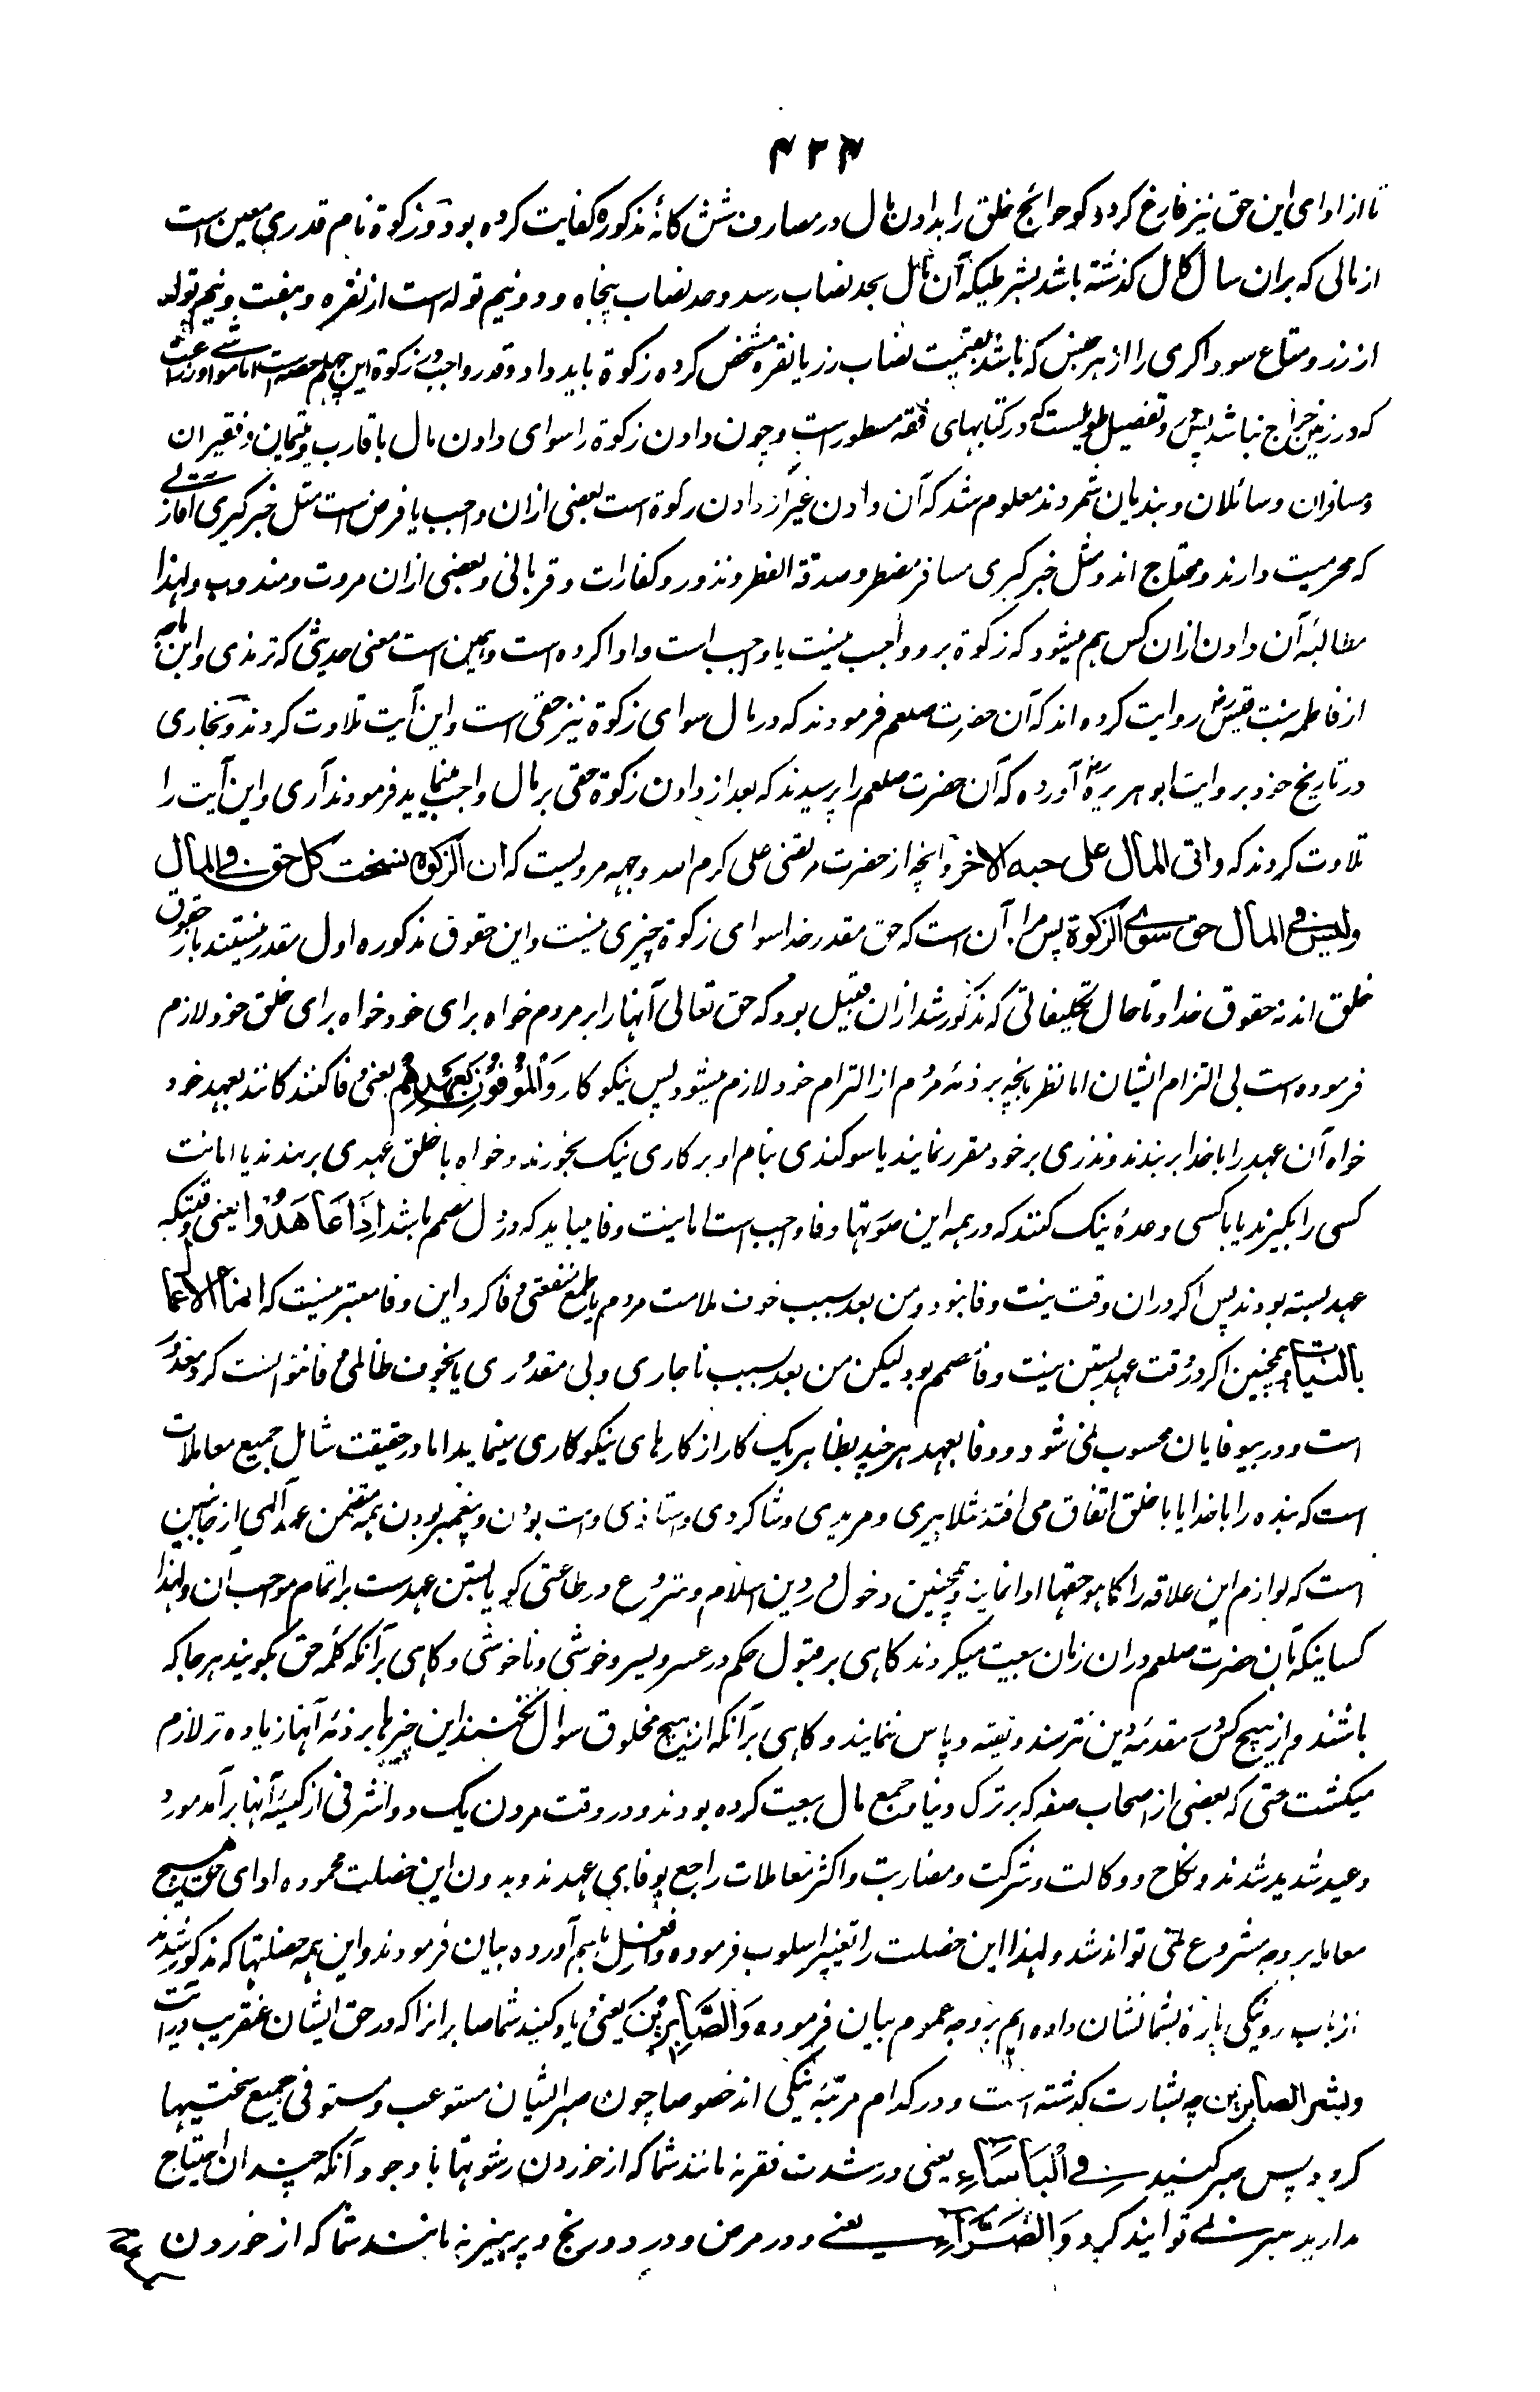 ۴۲۴
تا از ادای این حق نیز فارغ گردد گو حوائج خلق را بدادن مال در مصارف شش گانهٔ مذکوره کفایت کرده بود و زکوة نام قدری معین است
از مالی که بران سال کامل گذشته باشد بشرطیکه آن مال بحد نصاب رسد و حد نصاب پنجاه و دو نیم توله است از نقره و هفت و نیم توله
از زر و متاع سوداگری را از هر جنس که باشد بقیمت نصاب زر یا نقره مشخص کرده زکوة باید داد و قدر واجب در زکوة این چهلم حصه است اما مواشی و زراعت
که در زمین خراج نباشد پس تفصیل طویلیست که در کتابهای فقه مسطور است و چون دادن زکوة را سوای دادن مال باقارب و یتیمان و فقیران
و مسافران و سائلان و بندیان شمردند معلوم شد که آن دادن غیر از دادن زکوة است بعضی ازان واجب یا فرض است مثل خبرگیری اقارب
که محرمیت دارند و محتاج اند و مثل خبرگیری مسافر مضطر و صدقة الفطر و نذور و کفارات و قربانی و بعضی ازان مروت و مندوب و لهذا
مطالبهٔ آن دادن ازان کس هم میشود که زکوة برو واجب نیست یا واجب است و ادا کرده است و همین است معنی حدیثی که ترمذی و ابن ماجه
از فاطمه بنت قیس رض روایت کرده اند که آن حضرت صلعم فرمودند که در مال سوای زکوة نیز حقی است و این آیت تلاوت کردند و بخاری
در تاریخ خود بروایت ابو هریره رض آورده که آن حضرت صلعم را پرسیدند که بعد از دادن زکوة حقی بر مال واجب میماند فرمودند آری و این آیت را
تلاوت کردند که واتی المال علی حبه الاخر و انچه از حضرت مرتضی علی کرم الله وجهه مرویست که ان الزکوة نسخت کل حق فی المال
ولیس فی المال حق سوی الزکوة پس مراد آن است که حق مقدر خدا سوای زکوة چیزی نیست و این حقوق مذکوره اول مقدر نیستند باز حقوق
خلق اند نه حقوق خدا و تا حال تکلیفاتی که مذکور شد ازان قبیل بود که حق تعالی آنها را بر مردم خواه برای خود خواه برای خلق خود لازم
فرموده است بی التزام ایشان اما نظر بانچه بر ذمهٔ مردم از التزام خود لازم میشود پس نیکوکار وَالْمُوْفُوْنَ بِعَهْدِهِمْ یعنی وفا کنندگانند بعهد خود
خواه آن عهد را با خدا بربندند و نذری بر خود مقرر نمایند یا سوگندی بنام او بر کاری نیک بخورند و خواه با خلق عهدی بربندند یا امانت
کسی را بگیرند یا با کسی وعدهٔ نیک کنند که در همه این صورتها وفا واجب است اما نیت وفا میباید که در دل مصمم باشد اِذَا عَاهَدُوْا یعنی وقتیکه
عهد بسته بودند پس اگر دران وقت نیت وفا نبود و من بعد بسبب خوف ملامت مردم یا طمع منفعتی وفا کرد این وفا معتبر نیست که انما الاعمال
بالنیات و همچنین اگر در وقت عهد بستن نیت وفا مصمم بود لیکن من بعد بسبب ناچاری و بی مقدوری یا بخوف ظالمی وفا نتوانست کرد معذور
است و در بیوفایان محسوب نمی شود و وفا بعهد هر چند بظاهر یک کار از کارهای نیکوکاری مینماید اما در حقیقت شامل جمیع معاملات
است که بنده را با خدا یا با خلق اتفاق می افتد مثلا پیری و مریدی و شاگردی و استادی و امت بودن و پیغمبر بودن همه متضمن عهد الهی از جانبین
است که لوازم این علاقه را کما هو حقها ادا نمایند و همچنین دخول در دین اسلام و شروع در طاعتی گویا بستن عهد است بر اتمام موجب آن و لهذا
کسانیکه بآن حضرت صلعم دران زمان بیعت میکردند گاهی بر قبول حکم در عسر و یسر و خوشی و ناخوشی و گاهی بر آنکه کلمهٔ حق بگویند هر جا که
باشند و از هیچ کس در مقدمهٔ دین نترسند و تقیه و پاس ننمایند و گاهی بر آنکه از هیچ مخلوق سوال نکنند این چیزها بر ذمهٔ آنها زیاده تر لازم
میگشت حتی که بعضی از اصحاب صفه که بر ترک دنیا و جمع مال بیعت کرده بودند و در وقت مردن یک دو اشرفی از کیسهٔ آنها برآمد مورد
وعید شدید شدند و نکاح و وکالت و شرکت و مضاربت و اکثر معاملات راجع بوفای عهدند و بدون این خصلت محموده ادای حق هیچ
معامله بر وجه مشروع نمی تواند شد و لهذا این خصلت را تغییر اسلوب فرموده باسم آورده بیان فرمودند و این همه خصلتها که مذکور شدند
از باب نیکی بشما نشان داده ایم بر وجه عموم بیان فرموده وَالصَّابِرِیْنَ یعنی و یاد کنید شما صابرانرا که در حق ایشان عنقریب در آیت
وبشر الصابرین چه بشارت گذشته است و در کدام مرتبهٔ نیکی اند خصوصا چون صبر ایشان مستوعب و مستوفی جمیع سختیها
گردد پس صبر کنید فِی الْبَاْسَاءِ یعنی در شدت فقر نه مانند شما که از خوردن رشوتها با وجود آنکه چندان احتیاج
ندارید صبر نمی توانید کرد وَالضَّرَّاءِ یعنے و در مرض و درد و رنج و پرهیز نه مانند شما که از خوردن